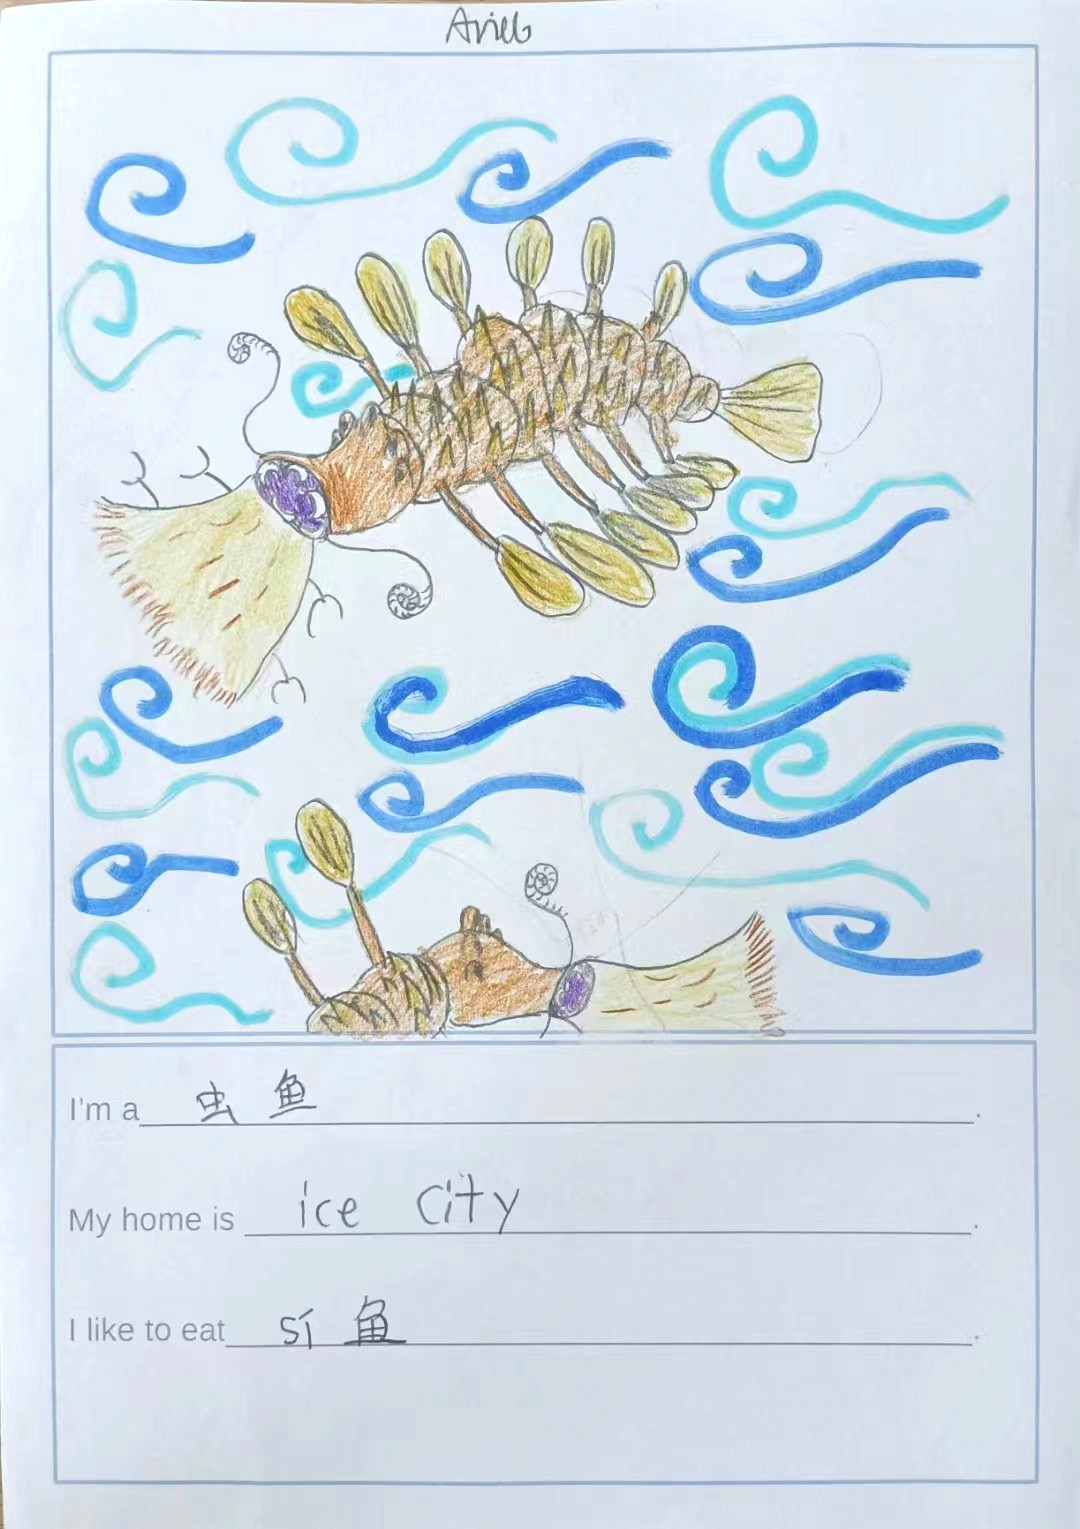 Arieb
I'm a 虫鱼.
My home is ice City.
I like to eat sí 鱼.